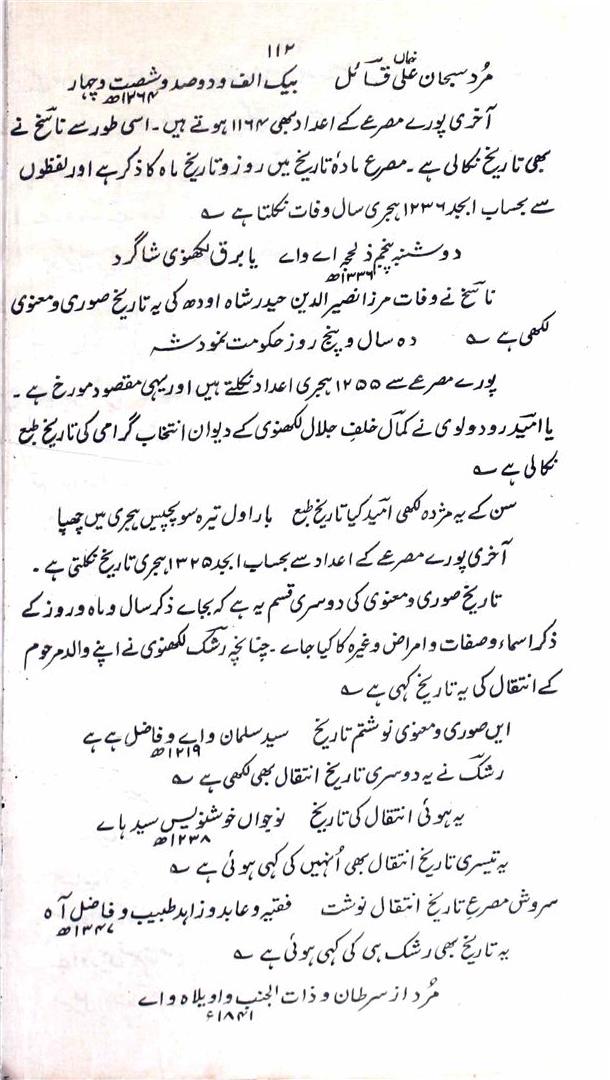 ۱۱۲
مُرد سبحان علی خاں قسائل بیک الف و دو صد و شصت و چہار
۱۲۶۴ھ
آخری پورے مصرع کے اعداد بھی ۱۱۶۴ ہوتے ہیں۔ اسی طور سے ناسخؔ نے
بھی تاریخ نکالی ہے۔ مصرع مادۂ تاریخ میں روز و تاریخ ماہ کا ذکر ہے اور لفظوں
سے بحساب ابجد ۱۲۳۶ ہجری سال وفات نکلتا ہے ؎
دوشنبہ پنجم ذلحجہ اے واے یا برق لکھنوی شاگرد
۱۲۳۶ھ
ناسخؔ نے وفات مرزا نصیر الدین حیدر شاہ اودھ کی یہ تاریخ صوری و معنوی
لکھی ہے ؎ دہ سال و پنج روز حکومت نمود شہ
پورے مصرعے سے ۱۲۵۵ ہجری اعداد نکلتے ہیں اور یہی مقصود مورخ ہے۔
یا امیدؔ ردولوی نے کمالؔ خلفِ جلال لکھنوی کے دیوان انتخاب گرامی کی تاریخ طبع
نکالی ہے ؎
سن کے یہ مژدہ لکھی امیدؔ کیا تاریخ طبع بار اول تیرہ سو پچیس ہجری میں چھپا
آخری پورے مصرعے کے اعداد سے بحساب ابجد ۱۳۲۵ ہجری تاریخ نکلتی ہے۔
تاریخ صوری و معنوی کی دوسری قسم یہ ہے کہ بجاے ذکر سال و ماہ و روز کے
ذکر اسماء و صفات و امراض وغیرہ کا کیا جاے۔ چنانچہ رشکؔ لکھنوی نے اپنے والد مرحوم
کے انتقال کی یہ تاریخ کہی ہے ؎
ایں صوری و معنوی نوشتم تاریخ سید سلمان واے و فاضل ہے ہے
۱۲۱۹ھ
رشکؔ نے یہ دوسری تاریخ انتقال بھی لکھی ہے ؎
یہ ہوئی انتقال کی تاریخ نوجواں خوشنویس سید ہاے
۱۲۳۸ھ
یہ تیسری تاریخ انتقال بھی اُنہیں کی کہی ہوئی ہے ؎
سروش مصرعِ تاریخ انتقال نوشت فقیر و عابد و زاہد طبیب و فاضل آہ
۱۳۴۷ھ
یہ تاریخ بھی رشک ہی کی کہی ہوئی ہے ؎
مُرد از سرطان و ذات الجنب واویلاہ واے
۱۸۴۱ء